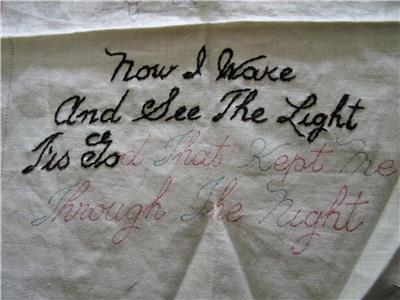 Now I Wake
And See The Light
Tis God That Kept Me
Through The Night